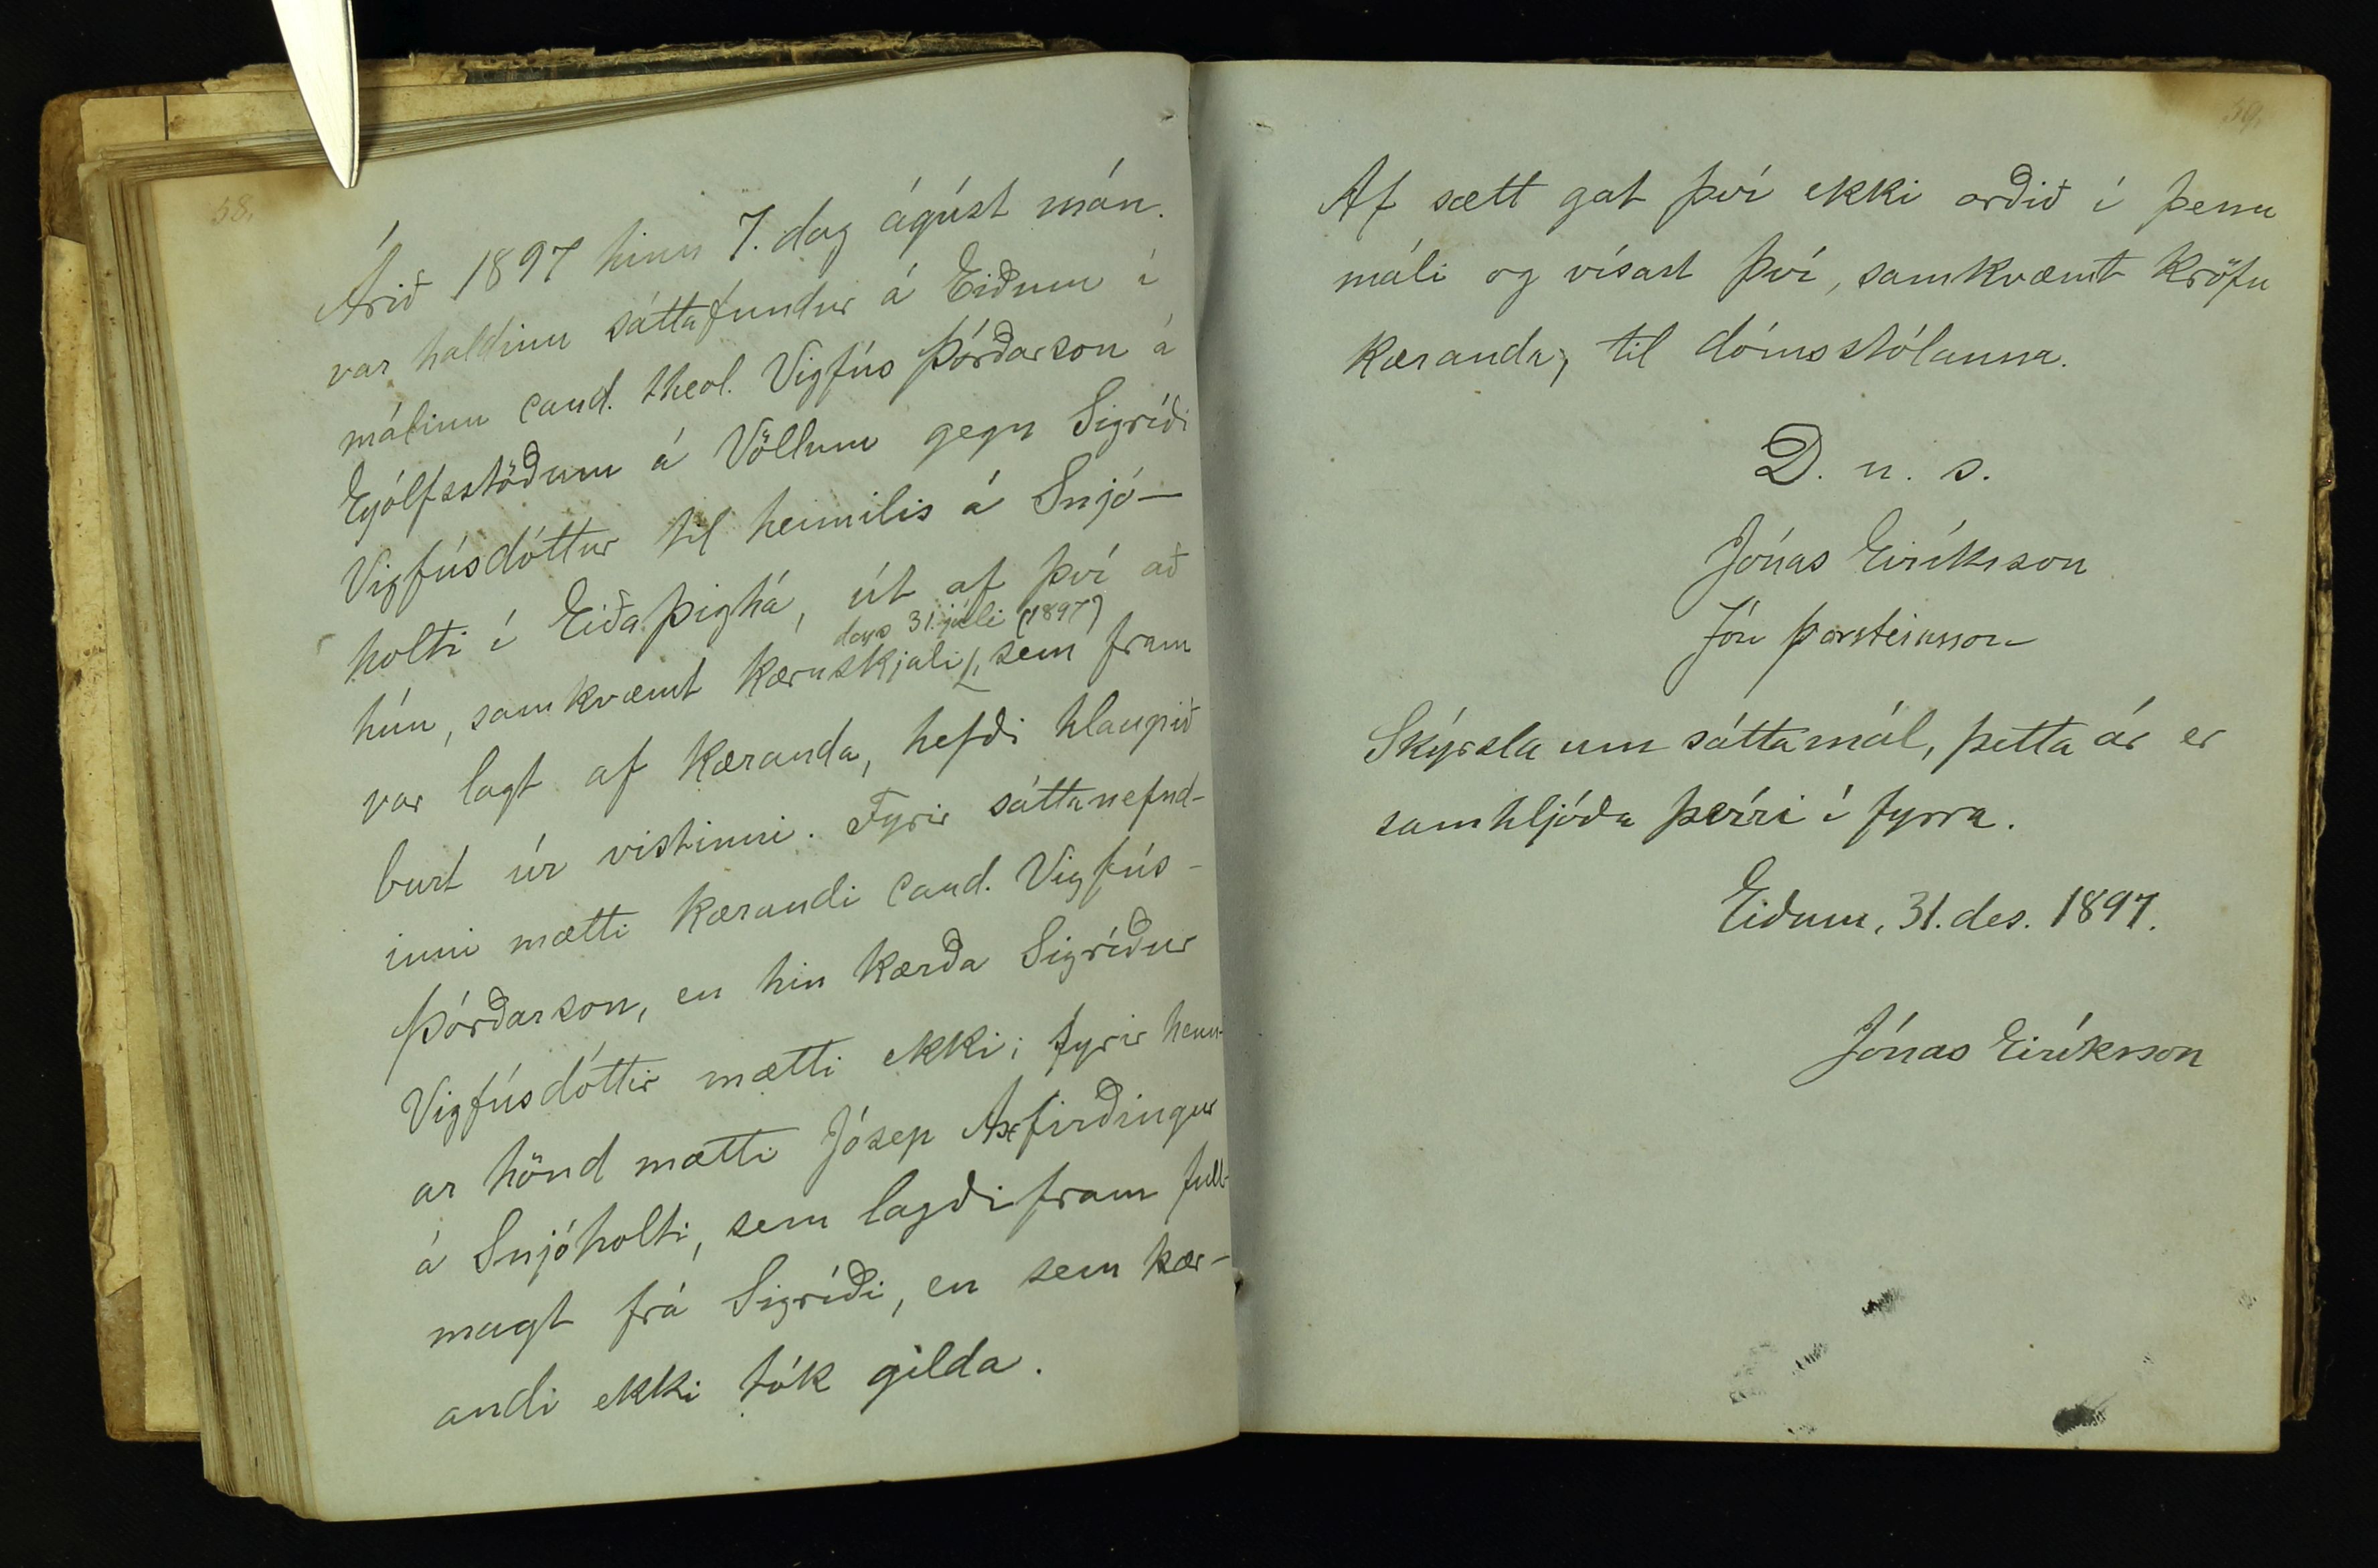 58.
Árið 1897 hinn 7. dag ágúst mán.
var haldinn sáttafundur á Eiðum í
málinu cand. theol. Vigfús Þórðarson á
Eyjólfsstöðum á Völlum gegn Sigríði
Vigfúsdóttur til heimilis á Snjó-
holti í Eiðaþinghá, út af því að
dags 31. júli (1897)
hún, samkvæmt kæruskjali, sem fram
var lagt af kæranda, hefði hlaupið
burt úr vistinni. Fyrir sáttanefnd-
inni mætti kærandi cand. Vigfús
Þórðarson, en hin kærða Sigríður
Vigfúsdóttir mætti ekki; fyrir henn-
ar hönd mætti Jósep Axfirðingur
á Snjóholti, sem lagði fram full-
magt frá Sigríði, en sem kær-
andi ekki tók gilda.
59.
Af sætt gat því ekki orðið í þessu
máli og vísast því, samkvæmt kröfu
kæranda, til dómsstólanna.
D. u. s.
Jónas Eiríksson
Jón Þorsteinsson
Skýrsla um sáttamál, þetta ár er
samhljóða þeirri í fyrra.
Eiðum, 31. des. 1897.
Jónas Eiríksson